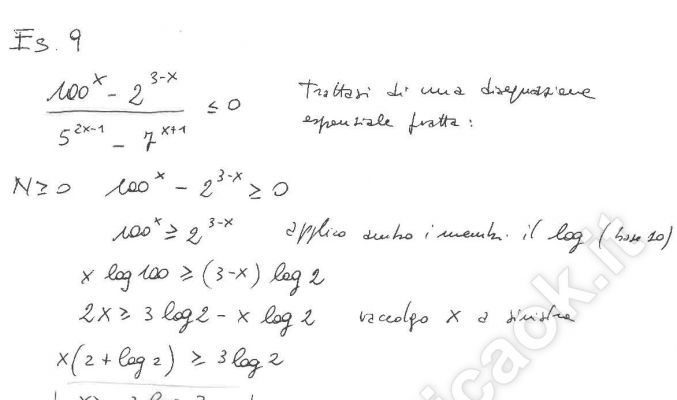 Es. 9
(100^x - 2^(3-x)) / (5^(2x-1) - 7^(x+1)) ≤ 0 Trattasi di una disequazione
esponziale fratta:
N ≥ 0 100^x - 2^(3-x) ≥ 0
100^x ≥ 2^(3-x) applico ambo i membri il log (base 10)
x log 100 ≥ (3-x) log 2
2x ≥ 3 log 2 - x log 2 raccolgo x a sinistra
x(2 + log 2) ≥ 3 log 2
icaok.it